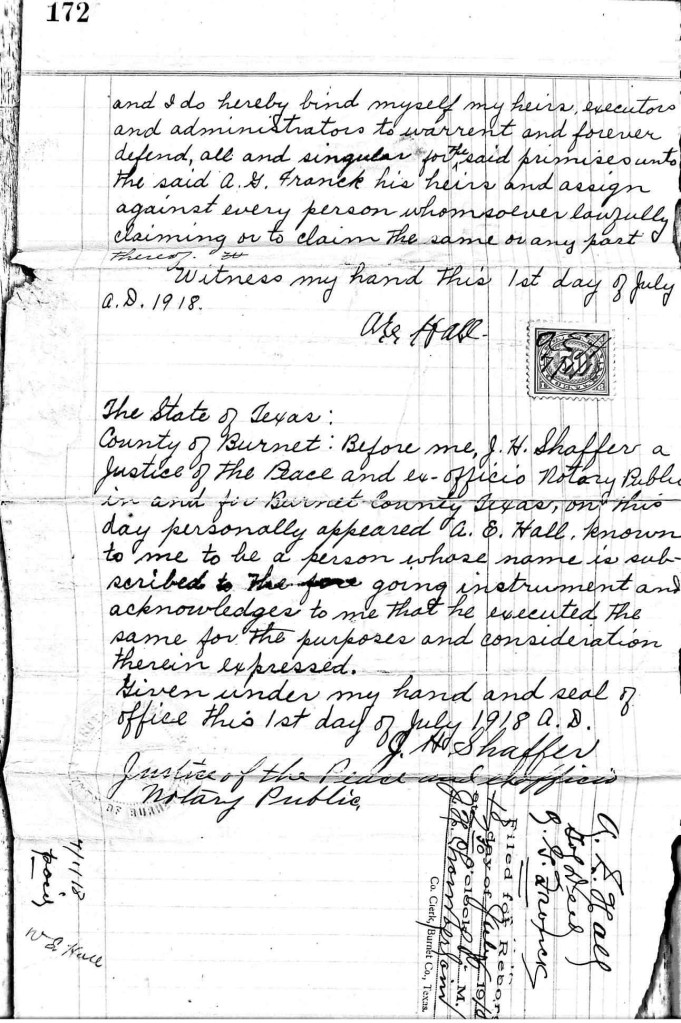 172
and I do hereby bind myself my heirs, executors
and administrators to warrent and forever
defend, all and singular for the said primises unto
the said A. G. Franck his heirs and assign
against every person whomsoever lawfully
claiming or to claim the same or any part
thereof.
Witness my hand this 1st day of July
A.D. 1918.
A E Hall
The State of Texas:
County of Burnet: Before me, J. H. Shaffer a
Justice of the Peace and ex-officio Notary Public
in and for Burnet County Texas, on this
day personally appeared A. E. Hall, known
to me to be a person whose name is sub-
scribed to the fore going instrument and
acknowledges to me that he executed the
same for the purposes and consideration
therein expressed.
Given under my hand and seal of
office this 1st day of July 1918 A.D.
J. H. Shaffer
Justice of the Peace and exofficio
Notary Public,
A. E. Hall
Deed
A. G. Franck
Filed for Record
day of July 19
M.
Co. Clerk, Burnet Co., Texas.
7/11/18
paid
W E Hall